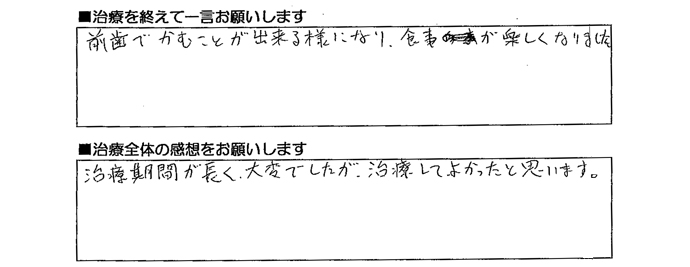 ■治療を終えて一言お願いします
前歯でかむことが出来る様になり、食事が楽しくなりました
■治療全体の感想をお願いします
治療期間が長く、大変でしたが、治療してよかったと思います。